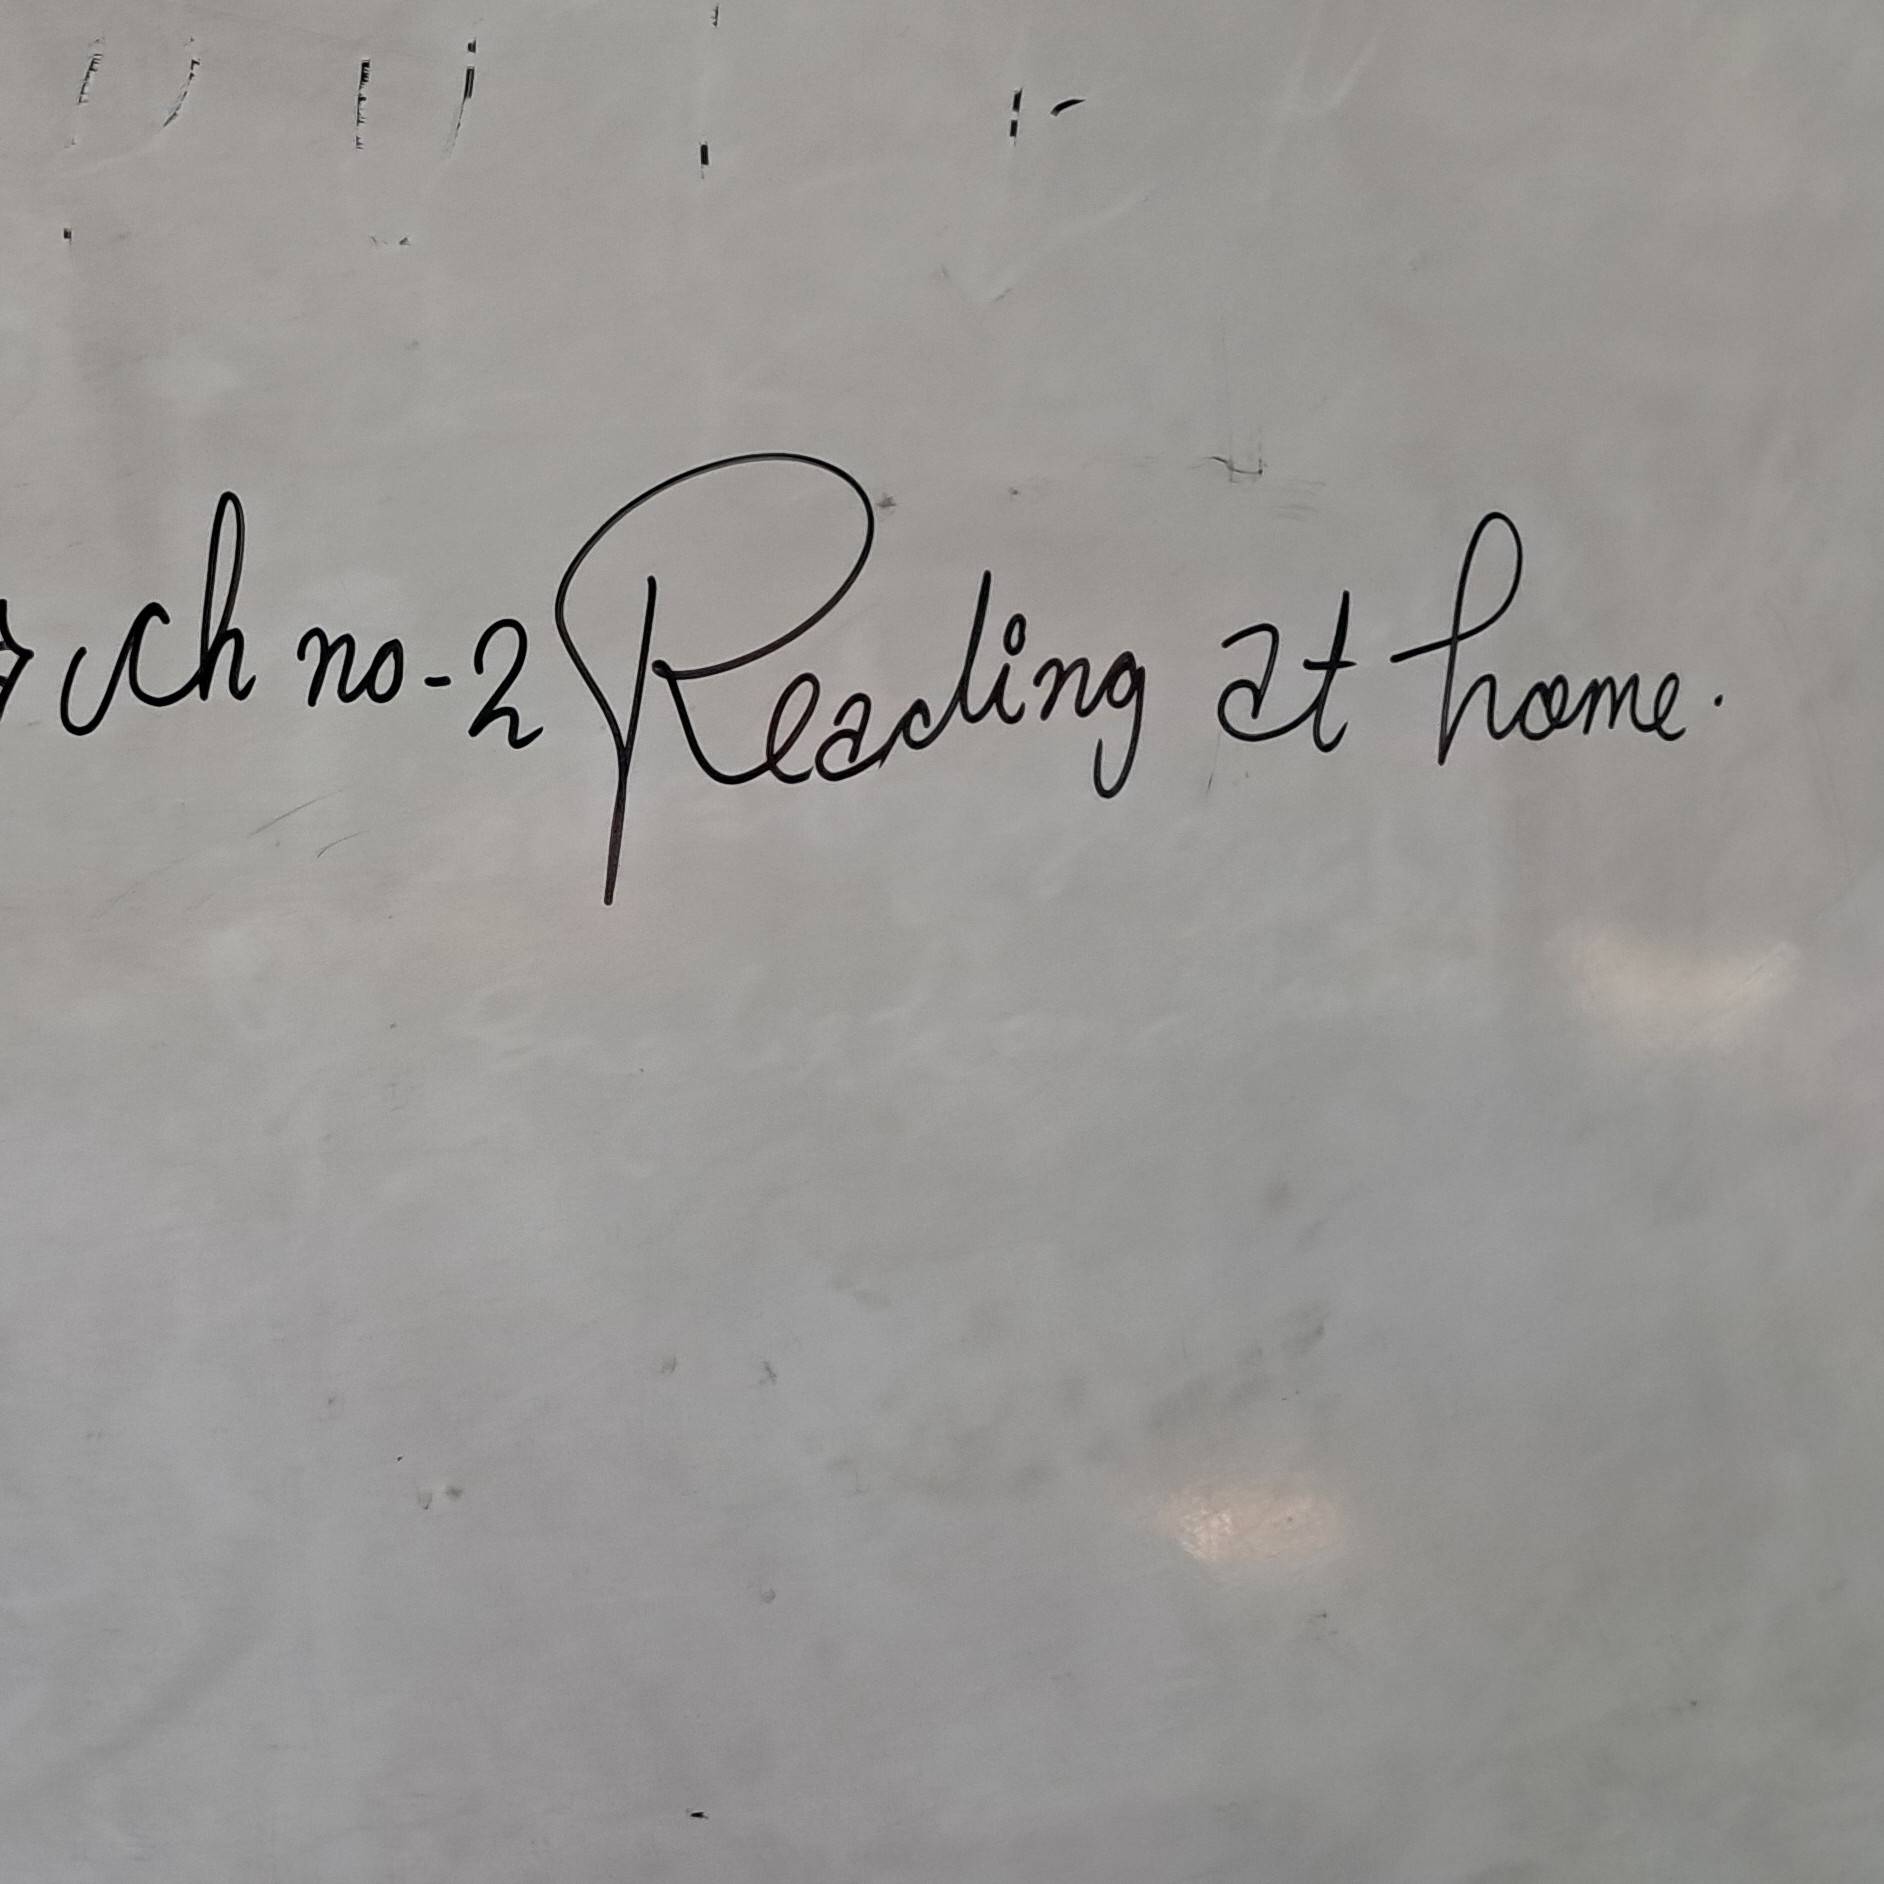 → Ch no-2 Reading at home.